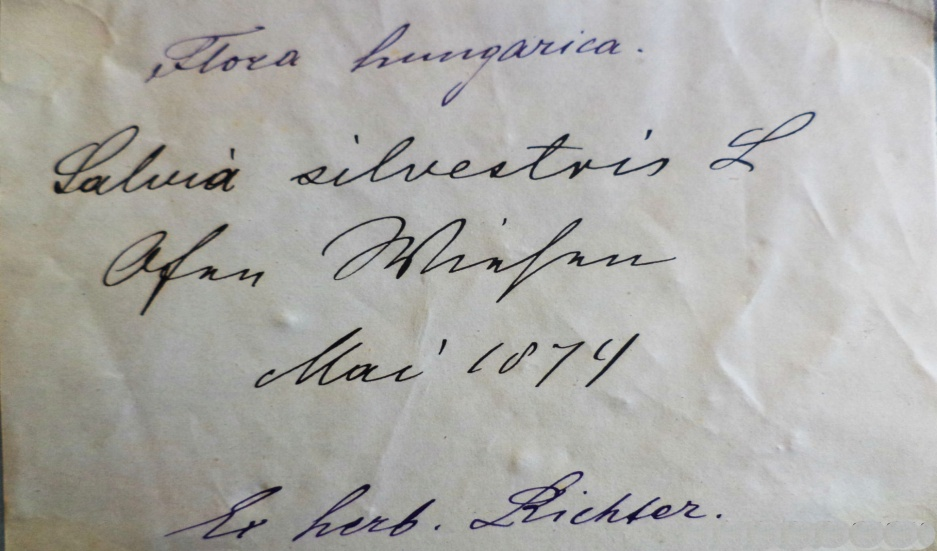 Flora hungarica.
Salvia silvestris L
Ofen Wiesen
Mai 1874
Ex herb. Richter.